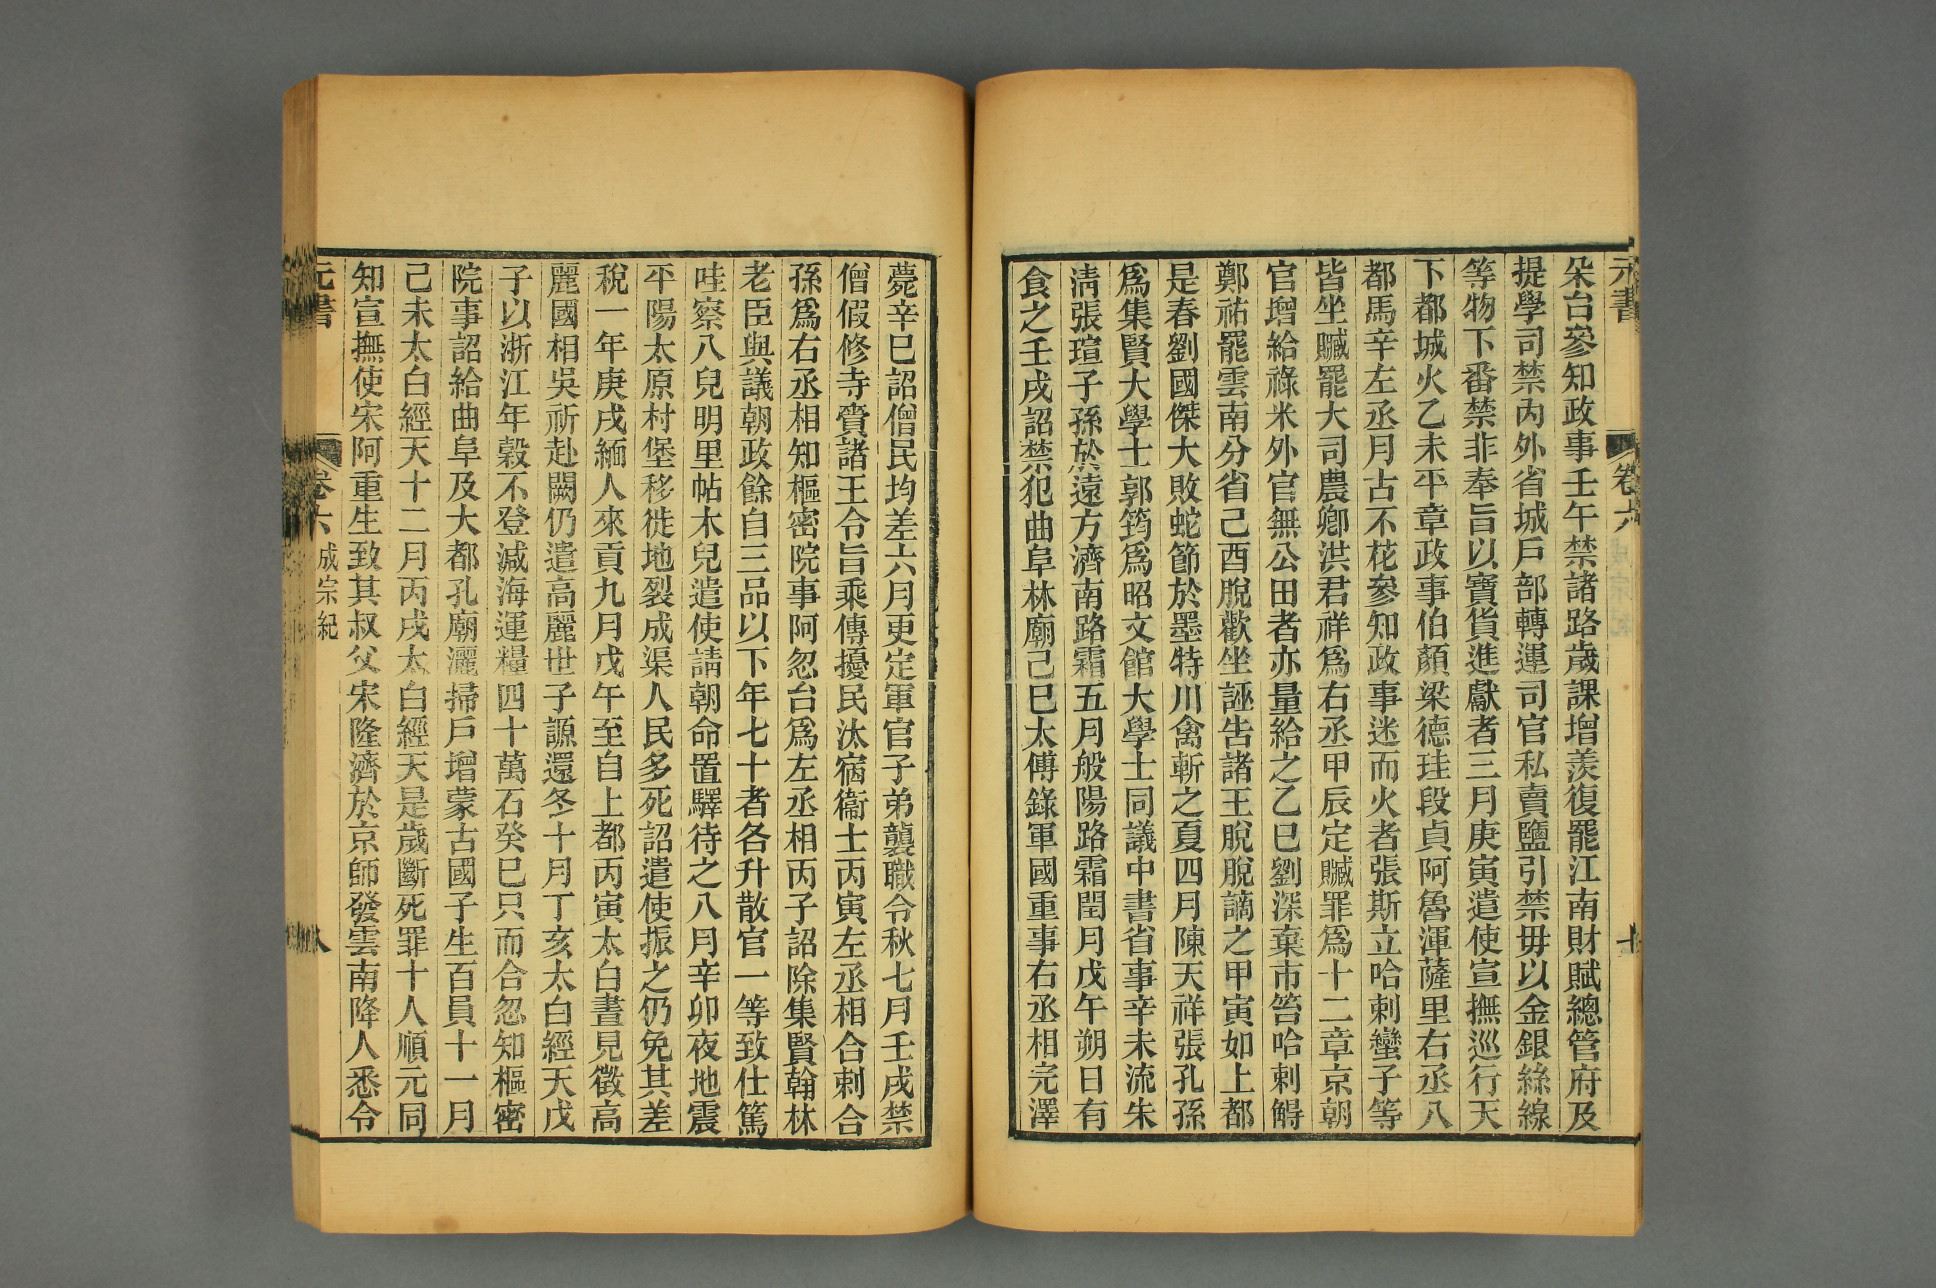 元書
卷六
朵台參知政事壬午禁諸路歲課增羨復罷江南財賦總管府及
提學司禁內外省城戶部轉運司官私賣鹽引禁毋以金銀絲線
等物下番禁非奉旨以寶貨進獻者三月庚寅遣使宣撫巡行天
下都城火乙未平章政事伯顏梁德珪段貞阿魯渾薩里右丞八
都馬辛左丞月古不花參知政事迷而火者張斯立哈剌蠻子等
皆坐贓罷大司農卿洪君祥爲右丞甲辰定贓罪爲十二章京朝
官增給祿米外官無公田者亦量給之乙巳劉深棄市笞哈剌䚟
鄭祐罷雲南分省己酉脫歡坐誣告諸王脫脫謫之甲寅如上都
是春劉國傑大敗蛇節於墨特川禽斬之夏四月陳天祥張孔孫
爲集賢大學士郭筠爲昭文館大學士同議中書省事辛未流朱
淸張瑄子孫於遠方濟南路霜五月般陽路霜閏月戊午朔日有
食之壬戌詔禁犯曲阜林廟己巳太傅錄軍國重事右丞相完澤
薨辛巳詔僧民均差六月更定軍官子弟襲職令秋七月壬戌禁
僧假修寺賫諸王令旨乘傳擾民汰宿衞士丙寅左丞相合剌合
孫爲右丞相知樞密院事阿忽台爲左丞相丙子詔除集賢翰林
老臣與議朝政餘自三品以下年七十者各升散官一等致仕篤
哇察八兒明里帖木兒遣使請朝命置驛待之八月辛卯夜地震
平陽太原村堡移徙地裂成渠人民多死詔遣使振之仍免其差
稅一年庚戌緬人來貢九月戊午至自上都丙寅太白晝見徵高
麗國相吳祈赴闕仍遣高麗世子謜還冬十月丁亥太白經天戊
子以浙江年穀不登減海運糧四十萬石癸巳只而合忽知樞密
院事詔給曲阜及大都孔廟灑掃戶增蒙古國子生百員十一月
己未太白經天十二月丙戌太白經天是歲斷死罪十人順元同
知宣撫使宋阿重生致其叔父宋隆濟於京師發雲南降人悉令
元書
卷六 成宗紀
八